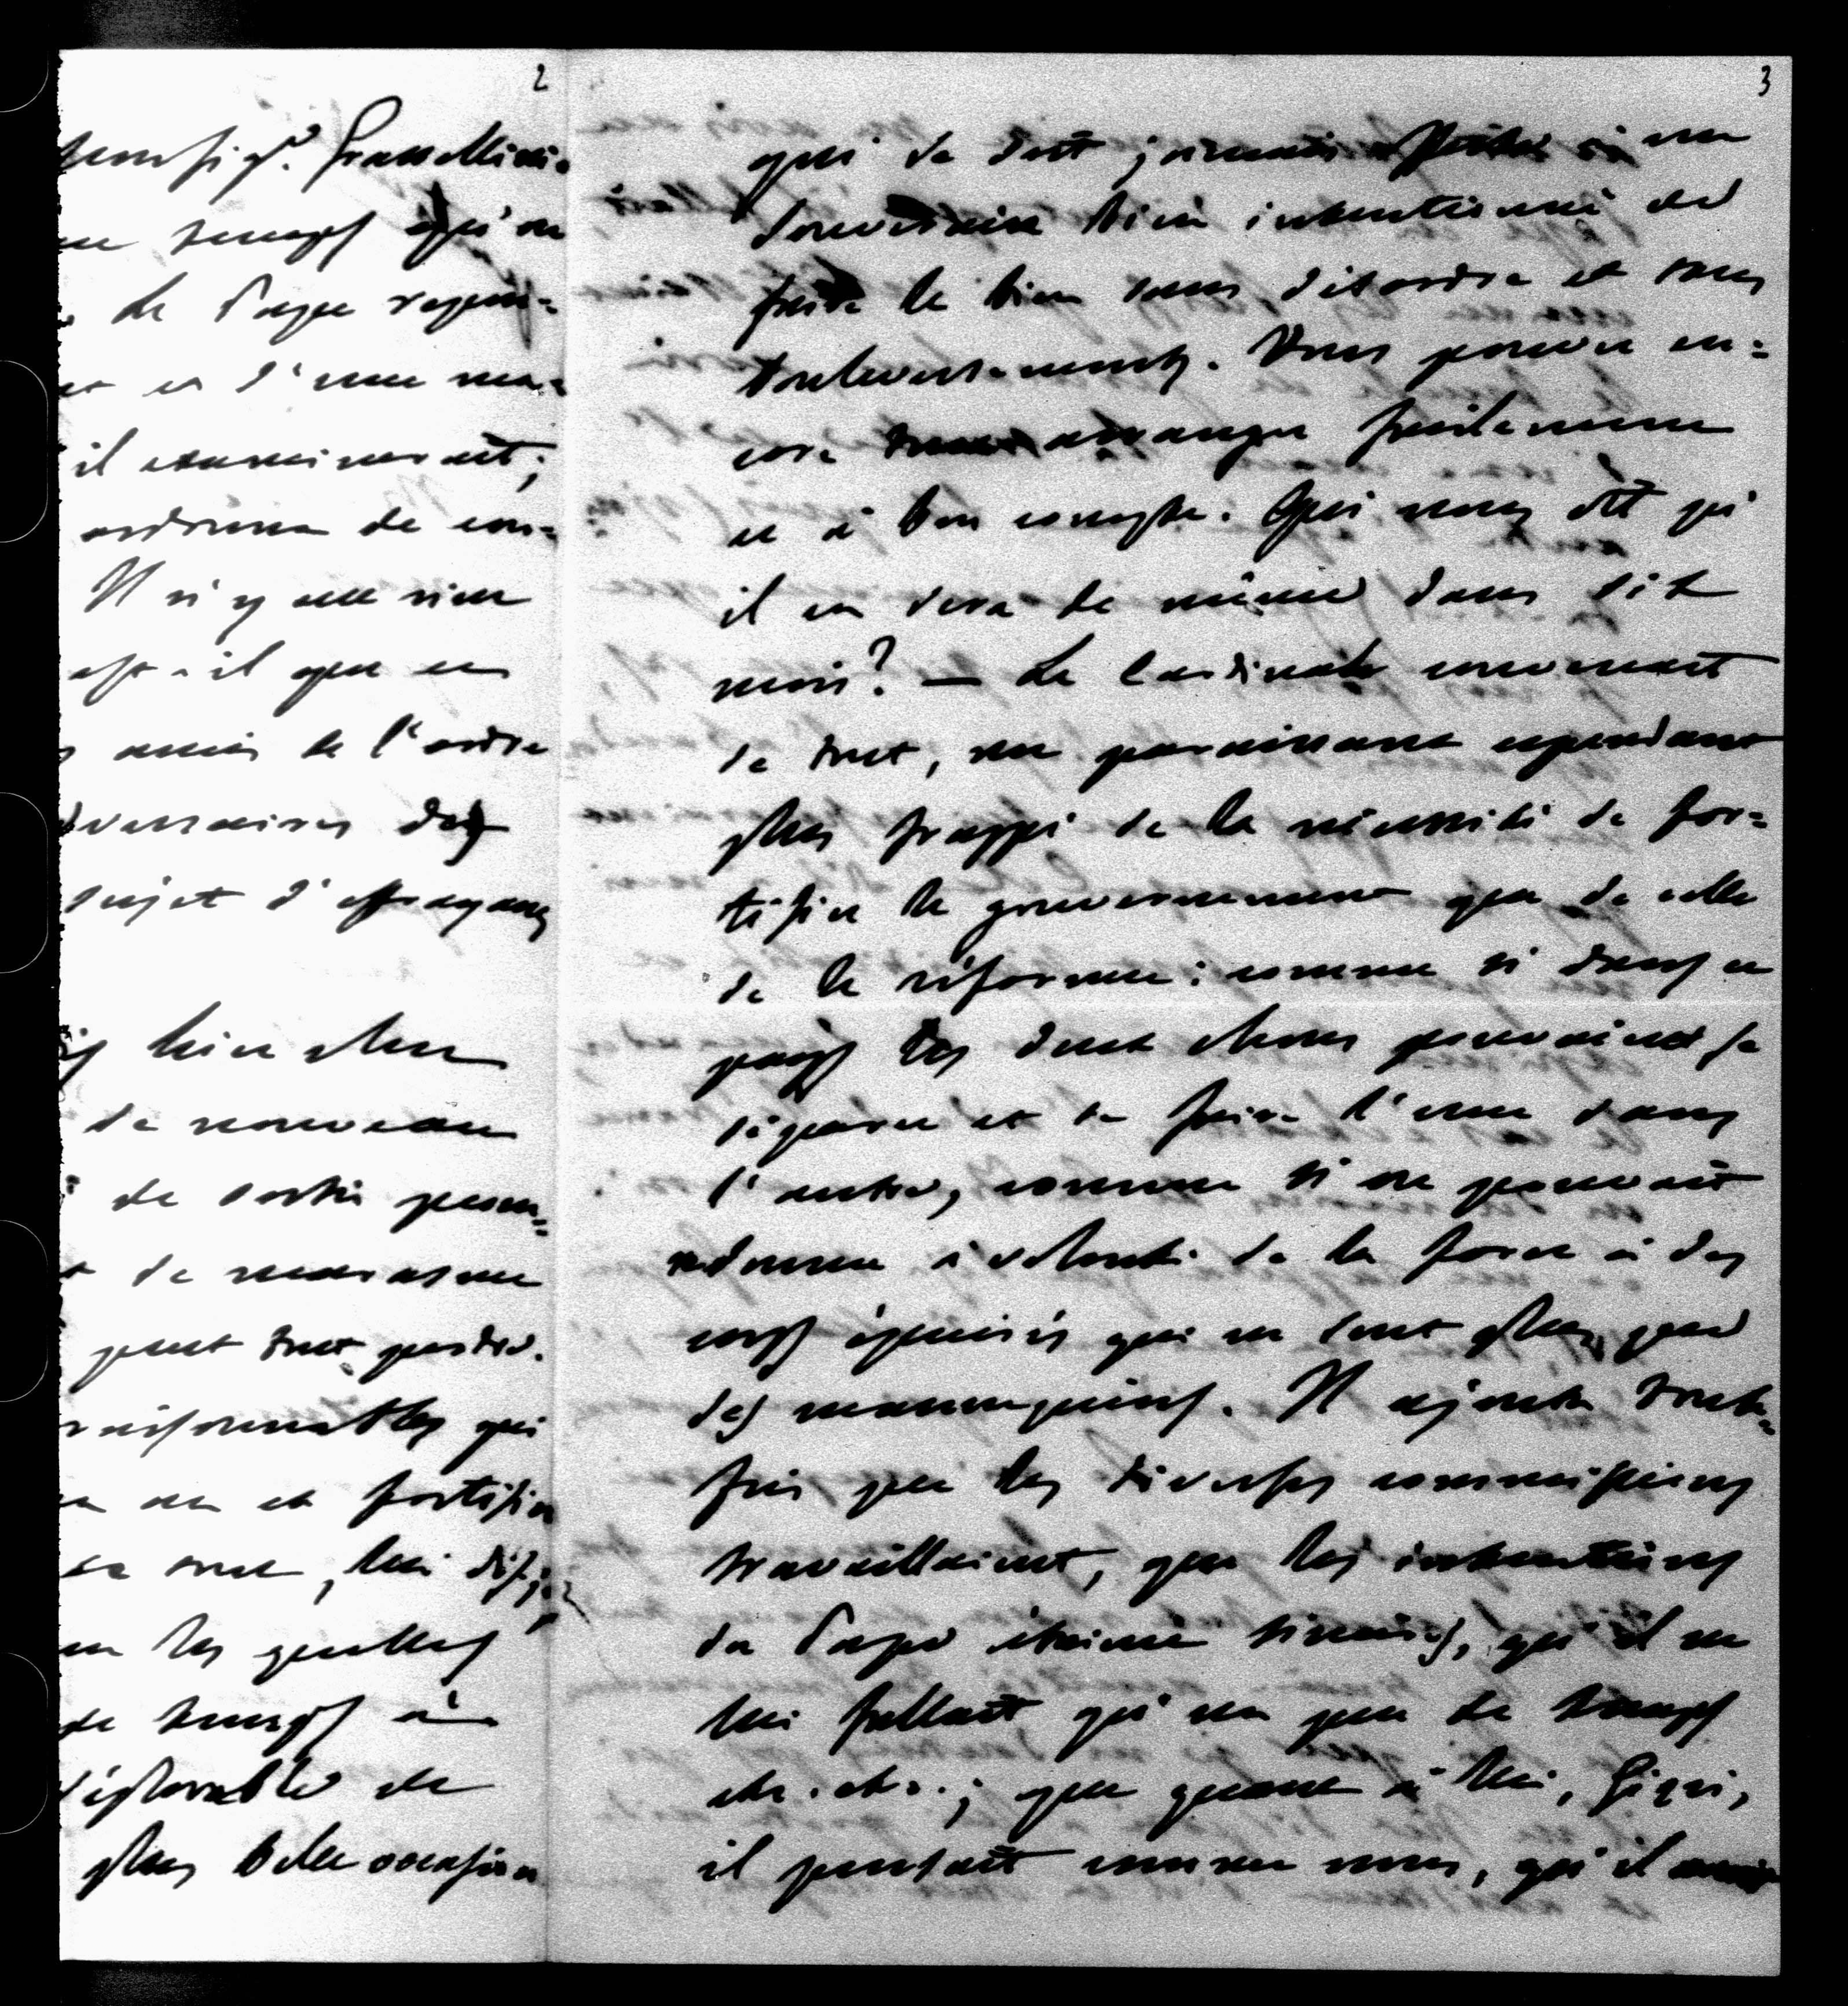 2
Monsig.r Grassellini
temps qu'on
Le Pape repous=
et d'une ma=
il examinerait;
ordonna de con=
Il n'y eut rien
est-il que
amis de l'ordre
adversaires des
sujet d'effrayans
bien chere
de nouveau
de sortir person=
de marasme
peut tout perdre.
raisonnables qui
et fortifier
tout, lui dis-je,
les quelles
de temps à
déplorable de
plus belle occasion
3
qui se soit jamais offerte à un
Souverain bien intentionné de
faire le bien sans désordre et sans
bouleversements. Vous pouvez en=
core arranger facilement
et à bon compte. Qui nous dit qu'
il en sera de même dans six
mois? — Le Cardinal convenait
de tout, me paraissant cependant
plus frappé de la nécessité de for=
tifier le gouvernement que de celle
de la réforme: comme si dans ce
pays les deux choses pouvaient se
séparer et se faire l'une sans
l'autre, comme si on pouvait
redonner à volonté de la force à des
corps épuisés qui ne sont plus que
des mannequins. Il ajouta toute=
fois que les diverses commissions
travaillaient, que les intentions
du Pape étaient sincères, qu'il ne
lui fallait qu'un peu de temps
etc. etc.; que quant à lui, Gizzi,
il pensait comme nous, qu'il